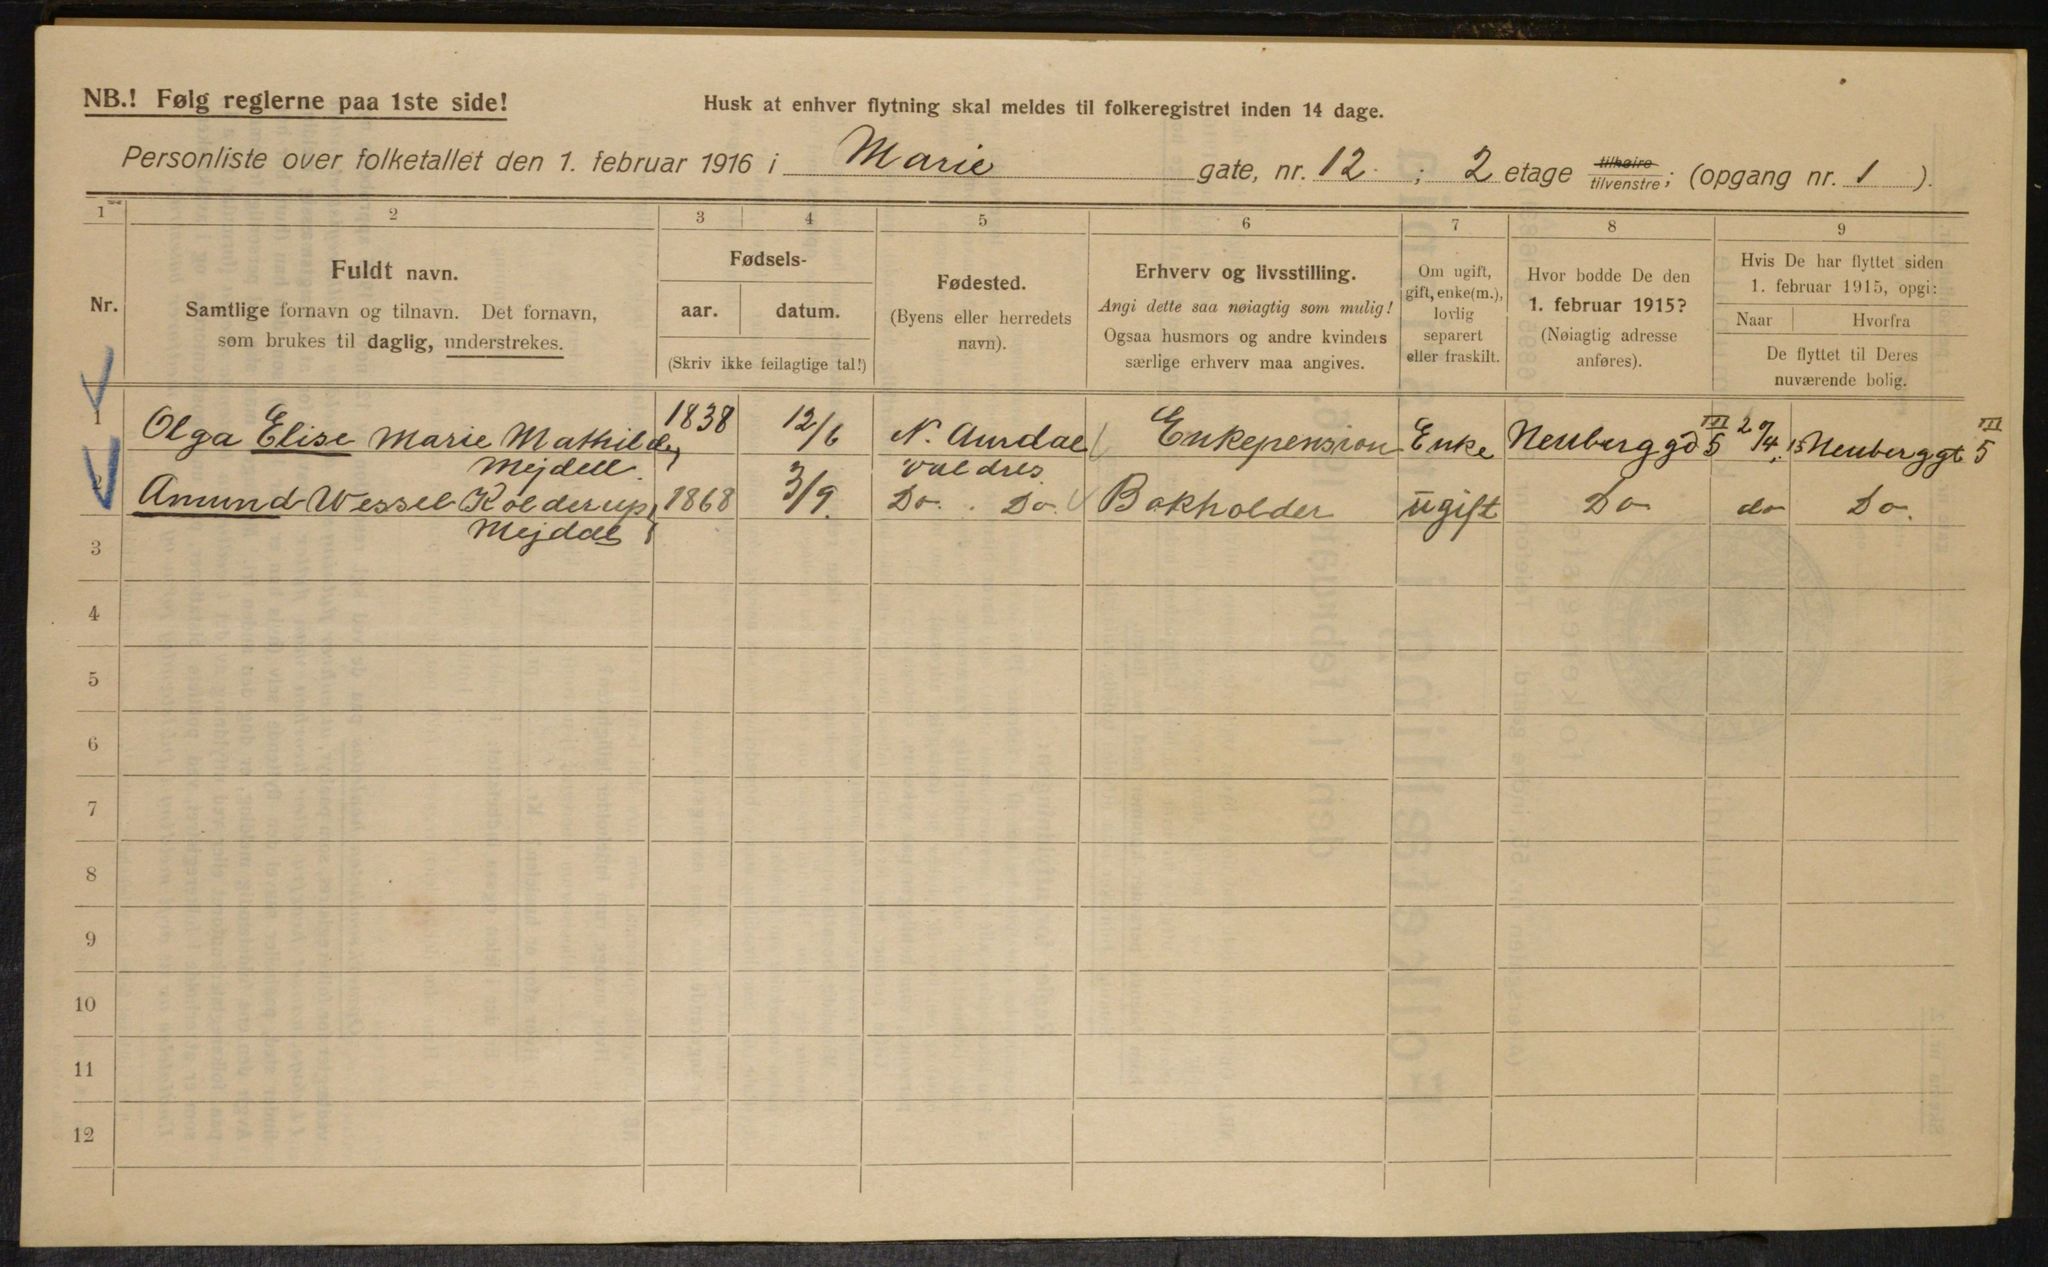 NB.! Følg reglerne paa 1ste side!
Husk at enhver flytning skal meldes til folkeregistret inden 14 dage.
Personliste over folketallet den 1. februar 1916 i Marie gate, nr. 12. ; 2 etage tilhøire tilvenstre; (opgang nr. 1 ).
1 2 3 4 5 6 7 8 9
Nr.
Fuldt navn.
Samtlige fornavn og tilnavn. Det fornavn,
som brukes til daglig, understrekes.
Fødsels-
aar. datum.
(Skriv ikke feilagtige tal!)
Fødested.
(Byens eller herredets
navn).
Erhverv og livsstilling.
Angi dette saa nøiagtig som mulig!
Ogsaa husmors og andre kvinders
særlige erhverv maa angives.
Om ugift,
gift, enke(m.),
lovlig
separert
eller fraskilt.
Hvor bodde De den
1. februar 1915?
(Nøiagtig adresse
anføres).
Hvis De har flyttet siden
1. februar 1915, opgi:
Naar Hvorfra
De flyttet til Deres
nuværende bolig.
1 Olga Elise Marie Mathilde 1838 12/6 N. Aurdal Enkepension Enke Neuberggd 5 III 15 Neuberggt 5 III
Mejdell Valdres
2 Amund Wessel Kolderup 1868 3/9 Do. Do. Bokholder ugift Do do Do.
Mejdell
3
4
5
6
7
8
9
10
11
12